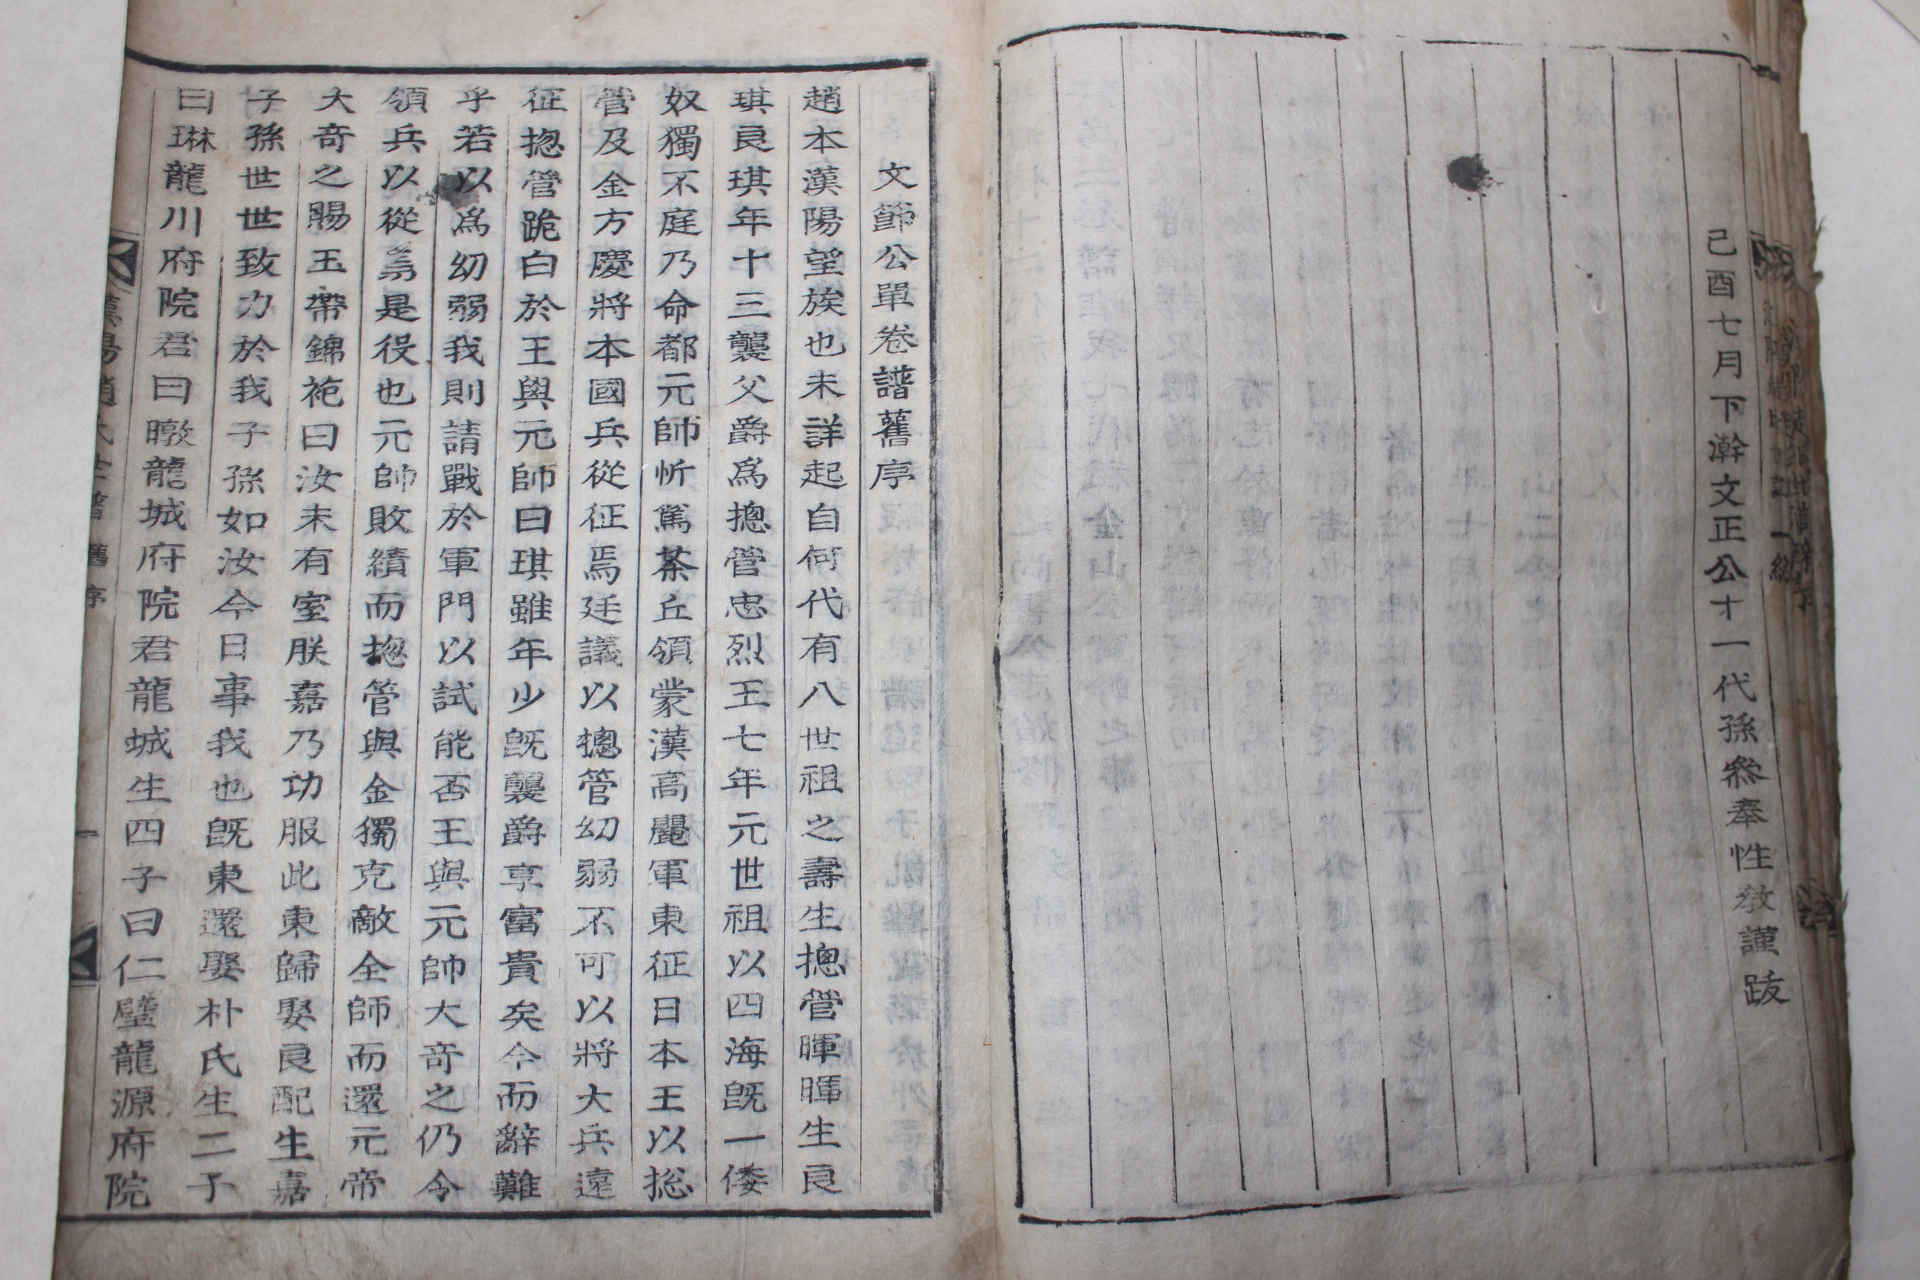 己酉七月下澣文正公十一代孫叅奉性敎謹跋
文節公單卷譜舊序
趙本漢陽望族也未詳起自何代有八世祖之壽生摠管暉暉生良
琪良琪年十三襲父爵爲摠管忠烈王七年元世祖以四海旣一倭
奴獨不庭乃命都元師忻篤茶丘領蒙漢高麗軍東征日本王以摠
管及金方慶將本國兵從征焉廷議以摠管幼弱不可以將大兵遠
征摠管跪白於王與元師曰琪雖年少旣襲爵享富貴矣今而辭難
乎若以爲幼弱我則請戰於軍門以試能否王與元帥大奇之仍令
領兵以從焉是役也元帥敗績而摠管與金獨克敵全師而還元帝
大奇之賜玉帶錦袍曰汝未有室朕嘉乃功服此東歸娶良配生嘉
子孫世世致力於我子孫如汝今日事我也旣東還娶朴氏生二子
曰琳龍川府院君曰暾龍城府院君龍城生四子曰仁璧龍源府院
漢陽趙氏世譜 舊序 一